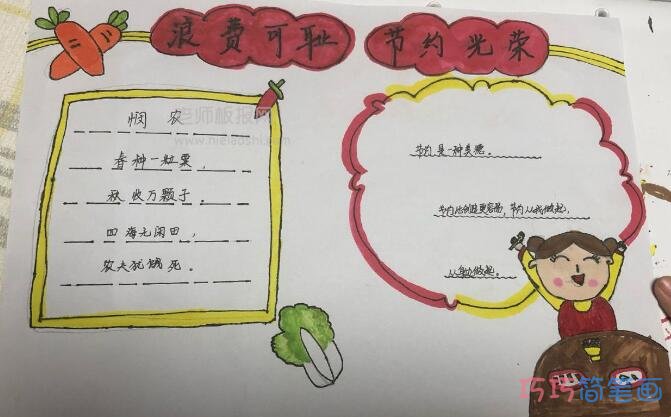 浪费可耻 节约光荣
悯农
春种一粒粟，
秋收万颗子。
四海无闲田，
农夫犹饿死。
节约是一种美德。
节约比创造更容易，节约从我做起，
做起。
老师板报网
www.hielaoshi.com
巧巧简笔画